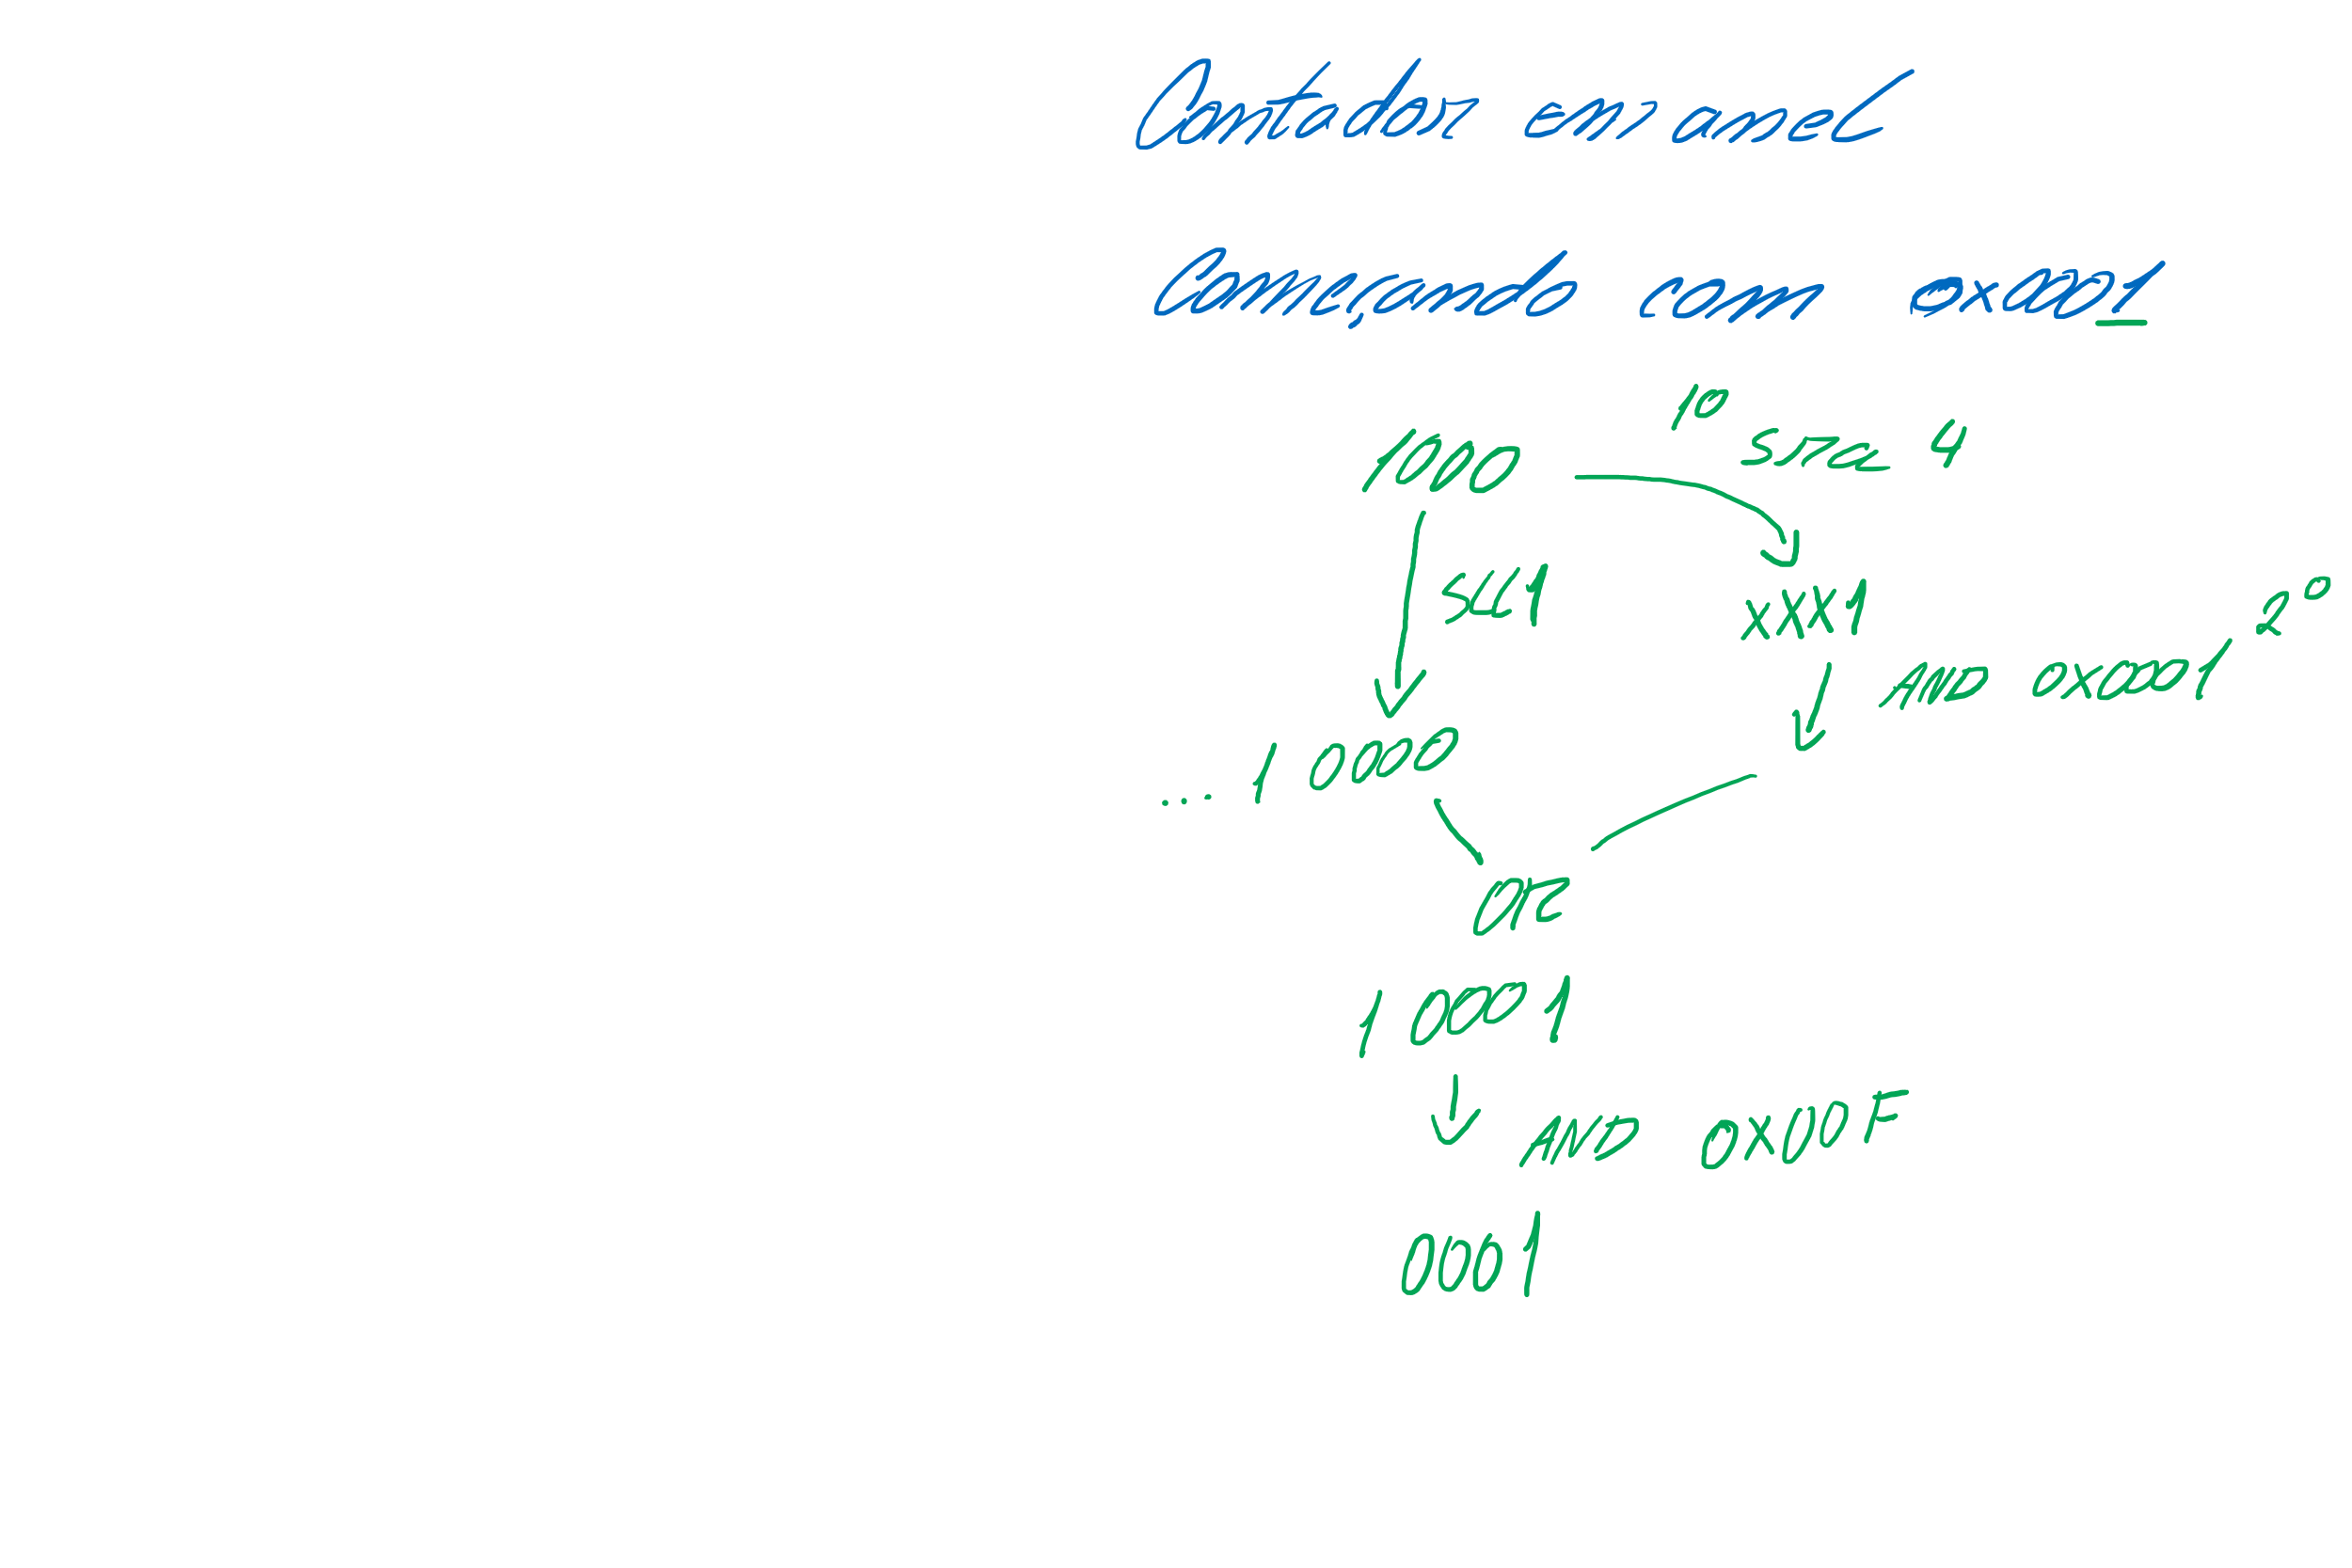 Contador em anel
Começando com 0x001
1000
1º SRL 4
SLL 1
XXX1
AND 0x0001 2º
... 1 0000
OR
1 0001
AND 0x00F
0001